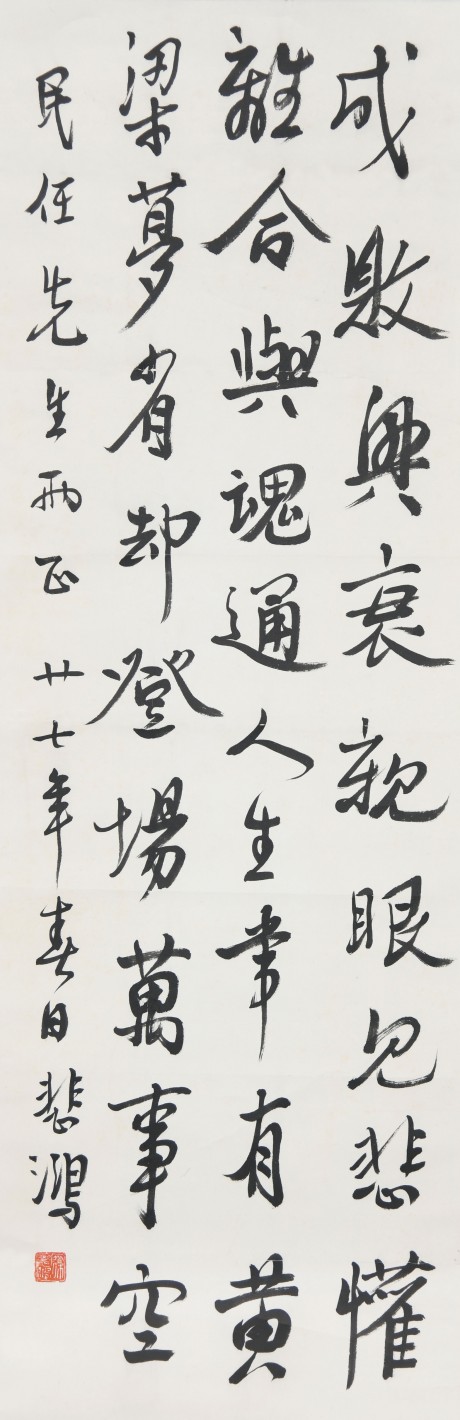 成敗興衰親眼見悲懽
離合與魂通人生常有黃
粱夢省却登場萬事空
民任先生兩正 廿七年春日悲鴻